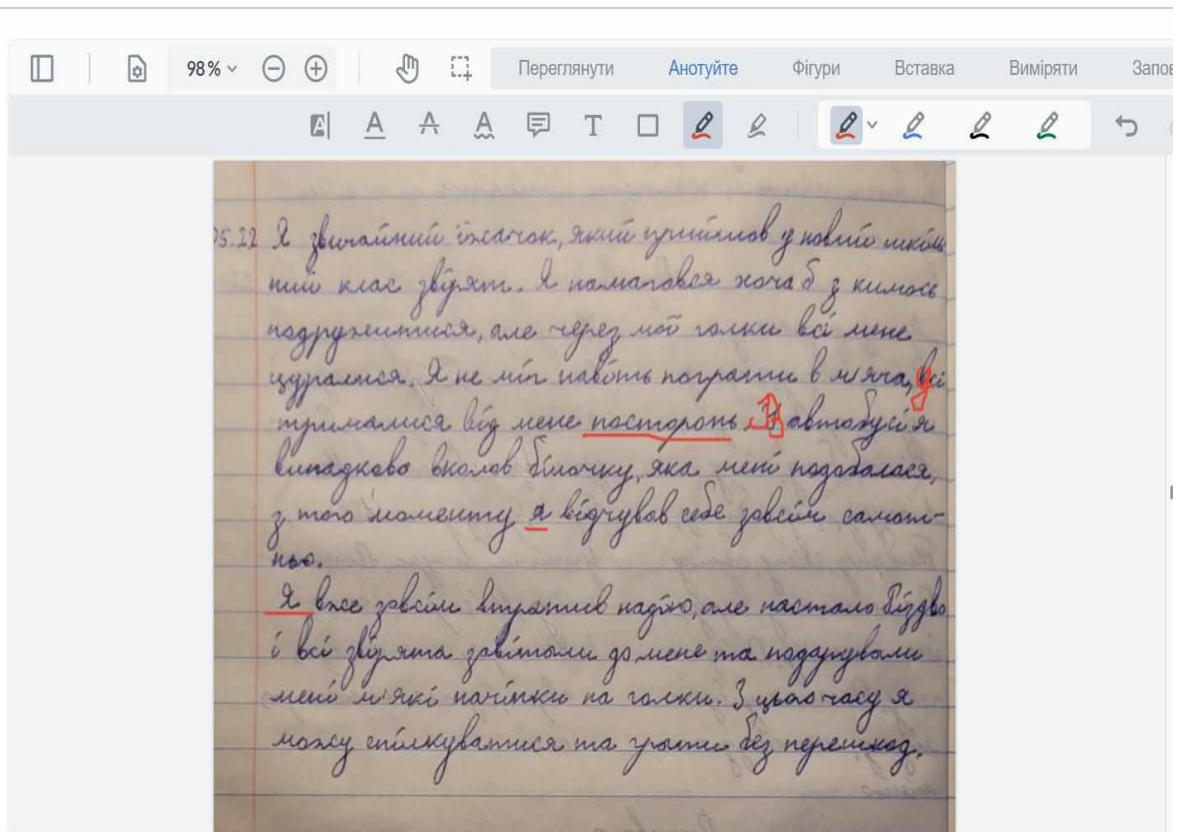 98%
Переглянути Анотуйте Фігури Вставка Виміряти Запов
A A A A T
05.22 Я звичайний їжачок, який прийшов у новий шкіль
ний клас звірят. Я намагався хоча б з кимось
подружитися, але через мої голки всі мене
цуралися. Я не міг навіть пограти в м'яча, всі
трималися від мене посторонь. В автобусі я
випадково вколов білочку, яка мені подобалася,
з того моменту я відчував себе зовсім самот-
нью.
Я вже зовсім втратив надію, але настало Різдво
і всі звірята завітали до мене та подарували
мені м'які начіпки на голки. З цього часу я
можу спілкуватися та грати без перешкод.